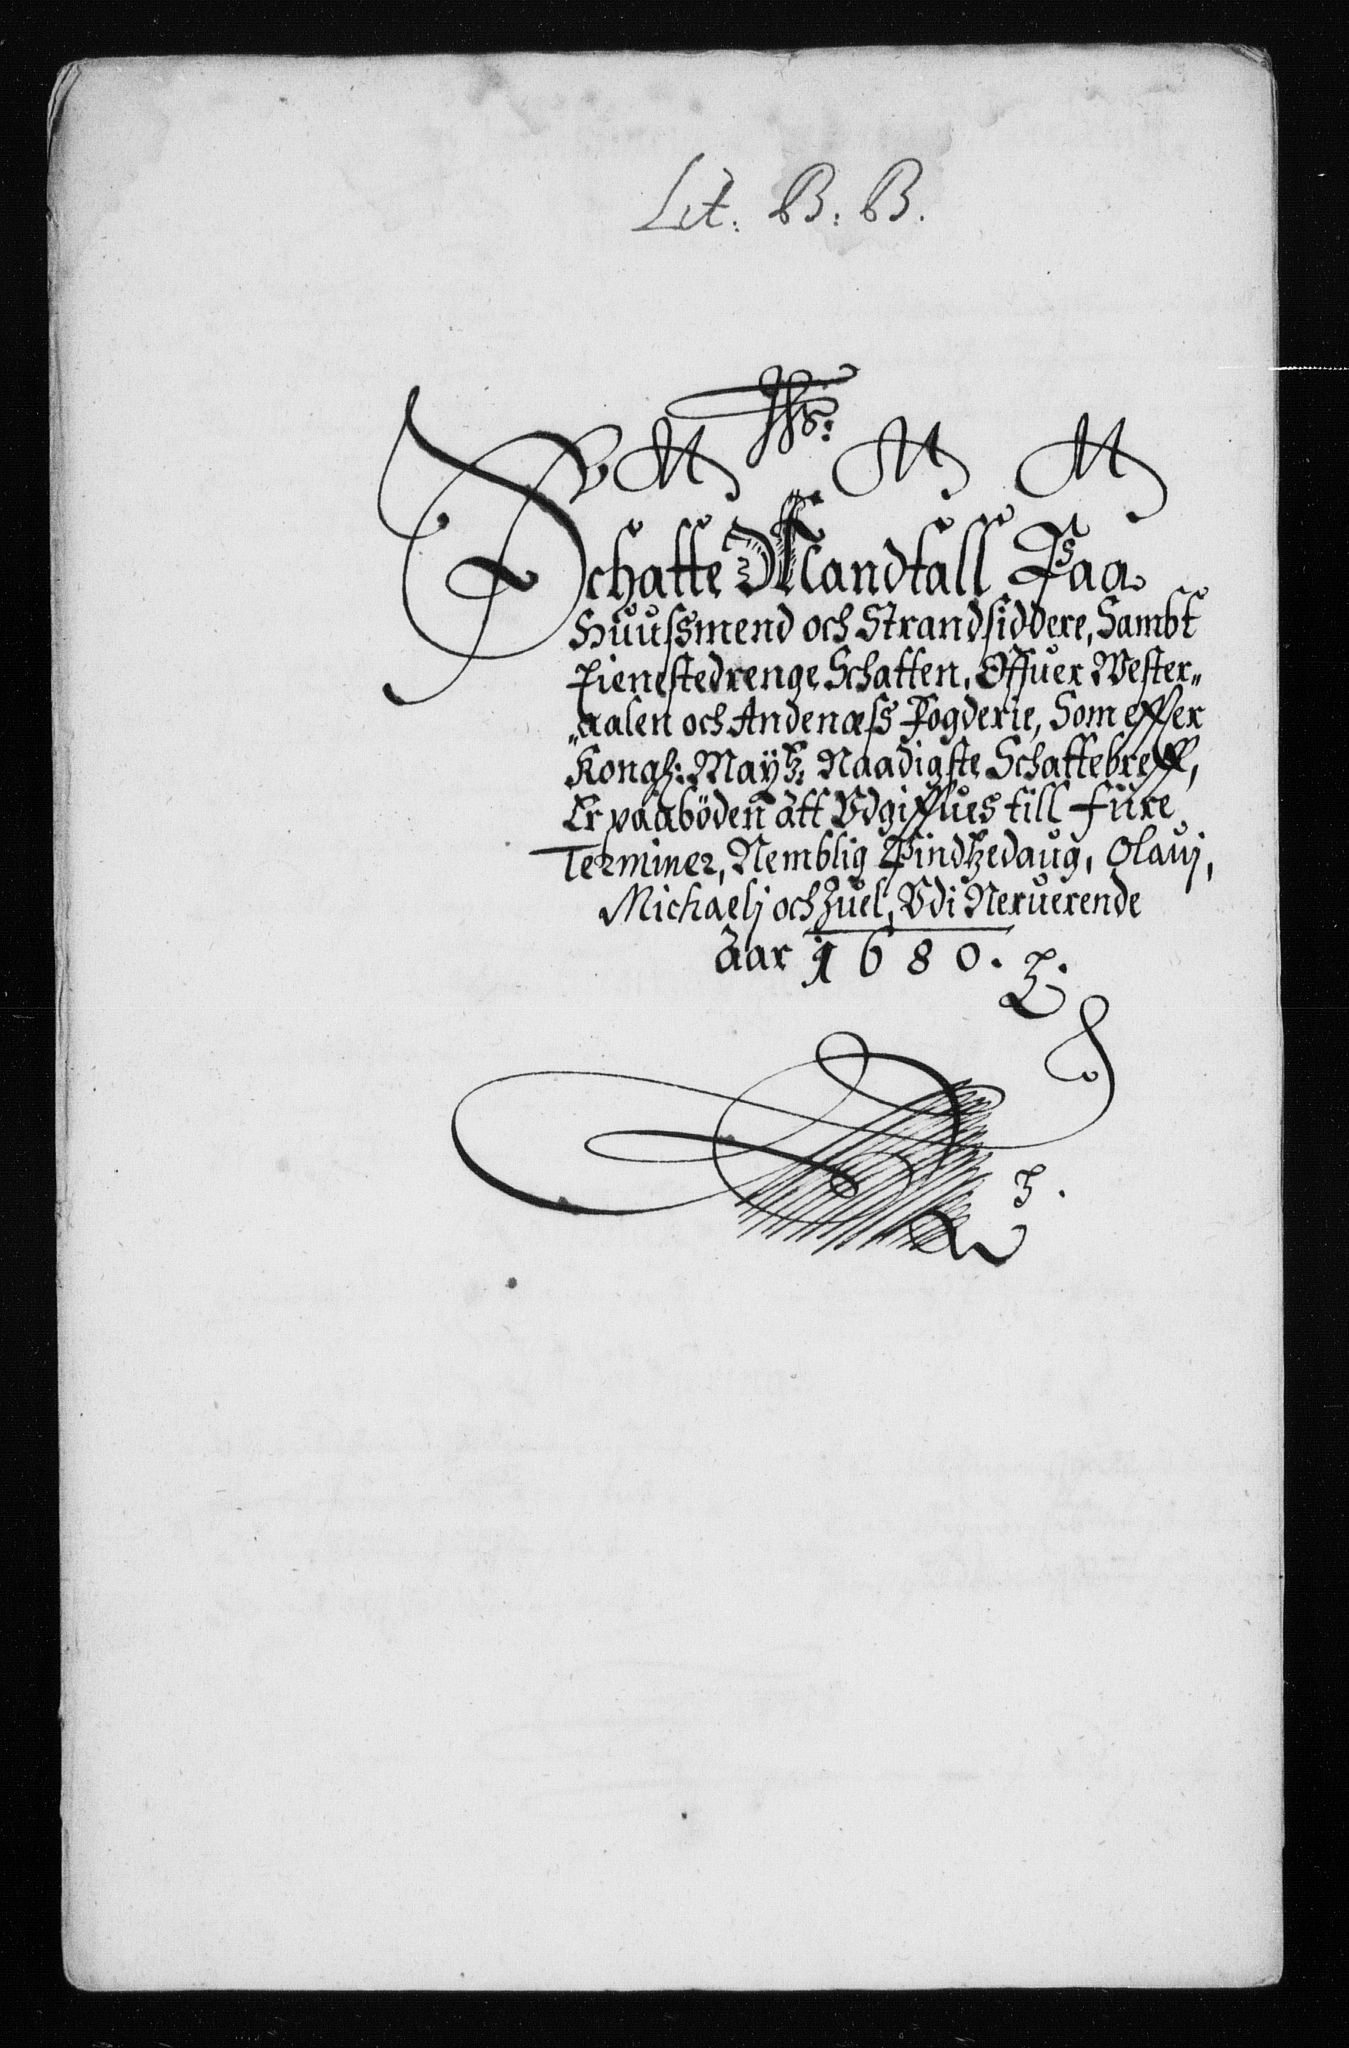 Lit: B: B.
Ihs:
Schatte Mandtall Paa
Huussmend och Strandsiddere, Sambt
Tienestedrenge Schatten, Offuer Wester„
„aalen och Andenæss Fogderie, Som effter
Kongl: Maÿtz: Naadigste Schattebreff,
Er paabôden att Vdgiffues till fiire
Terminer, Nemblig Pindtzedaug, Olauj,
Michaelj och Juel, Vdi Neruerende
Aar 1680.